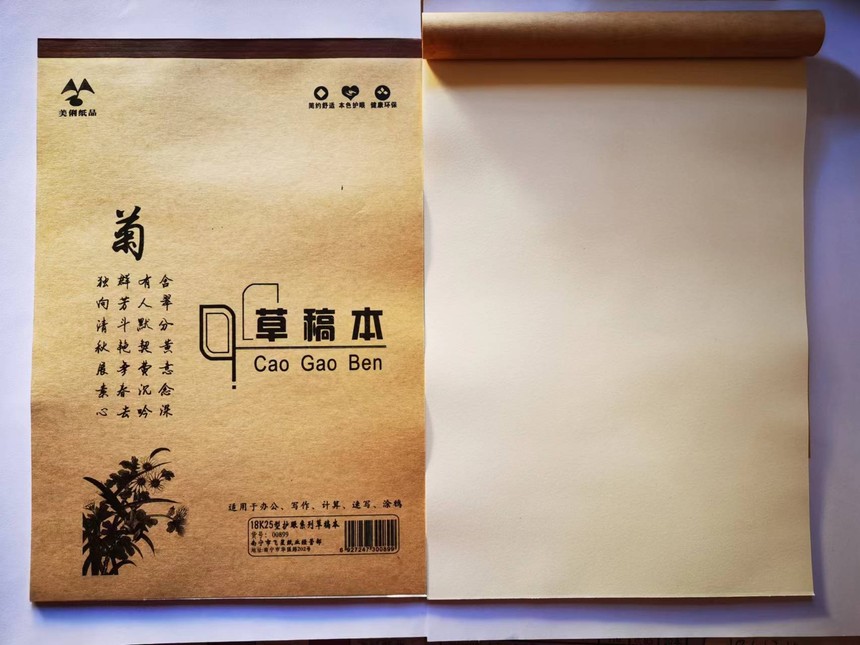 美俐纸品
简约舒适 本色护眼 健康环保
菊
含翠分黄意念深
有人默契费沉吟
群芳斗艳争春去
独向清秋展素心
草稿本
Cao Gao Ben
适用于办公、写作、计算、速写、涂鸦
18K25型护眼系列草稿本
货号：00899
南宁市纸业经营部
地址:南宁市华强路
6 927247 300899